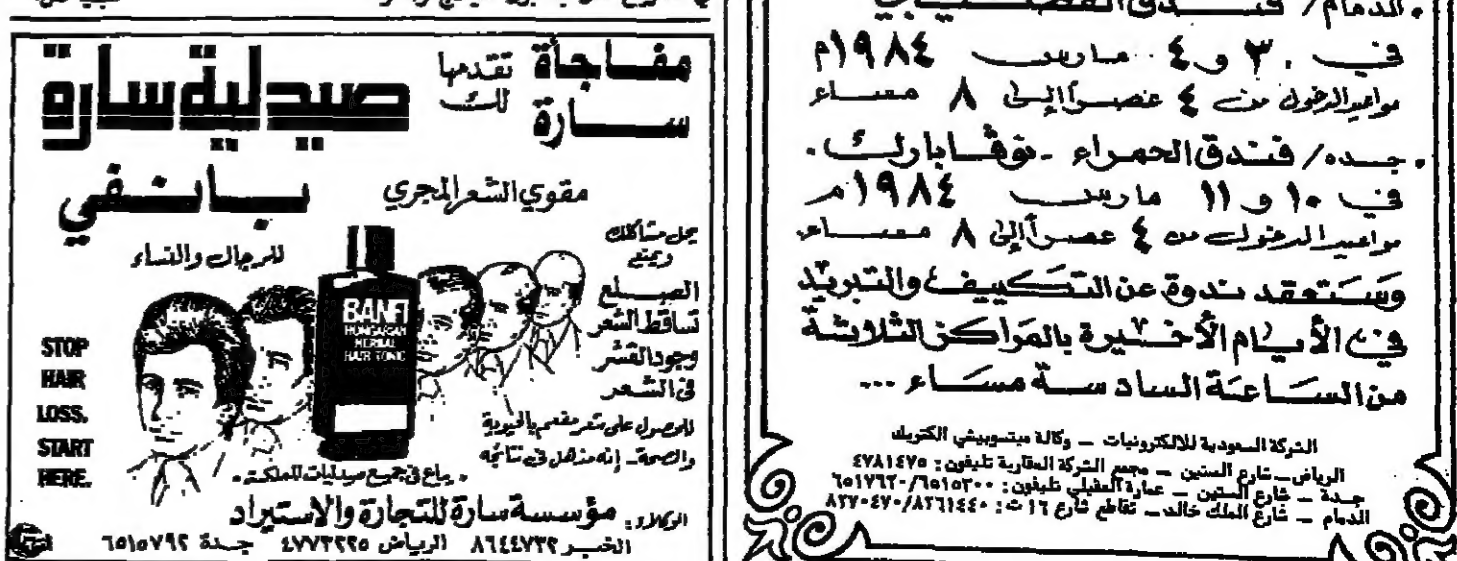 الدمام / فندق القصيبي
في ٣٠ و ٤ مارس ١٩٨٤م
مواعيد الدخول من ٤ عصراً إلى ٨ مساء
جده / فندق الحمراء - نوفابارك .
في ١٠ و ١١ مارس ١٩٨٤م
مواعيد الدخول من ٤ عصراً إلى ٨ مساء
وستعقد ندوة عن التكييف والتبريد
في الأيام الأخيرة بالمراكز الثلاثة
من الساعة السادسة مساء ...
الشركة السعودية للالكترونيات – وكالة ميتسوبيشي الكتريك
الرياض – شارع الستين – مجمع الشركة العقارية تليفون : ٤٧٨١٤٧٥
جدة – شارع الستين – عمارة العقيلي تليفون : ٦٥١٥٣٠٠/٦٥١٧٦٢٠
الدمام – شارع الملك خالد – تقاطع شارع ١٦ ت : ٨٢٦١٤٤٠/٨٢٧٠٤٧٠
مفاجأة سارة
تقدمها لك
صيدلية سارة
بانفي
مقوي الشعر المجري
للرجال والنساء
يحل مشاكلك
ويمنع
الصلع
تساقط الشعر
وجود القشر
في الشعر
للحصول على شعر مفعم بالحيوية
والصحة - إنه مذهل في نتائجه
يباع في جميع صيدليات المملكة .
BANFI
HUNGARIAN
HERBAL
HAIR TONIC
STOP
HAIR
LOSS.
START
HERE.
الوكلاء : مؤسسة سارة للتجارة والاستيراد
الخبر ٨٦٤٤٧٣٢ الرياض ٤٧٧٣٢٢٥ جدة ٦٥١٥٧٩٢